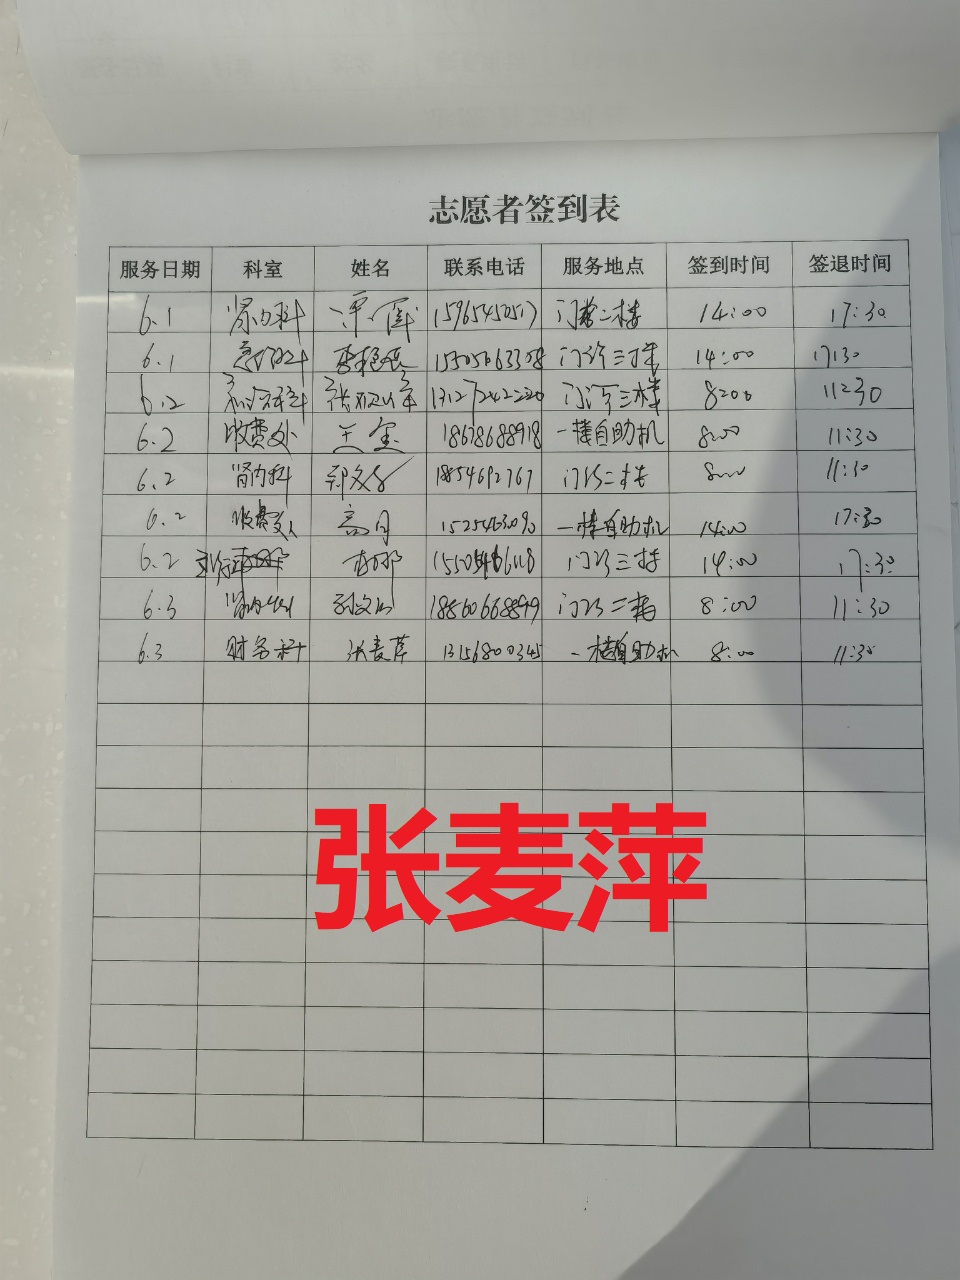 志愿者签到表
服务日期 科室 姓名 联系电话 服务地点 签到时间 签退时间
6.1 肾内科 门诊二楼 14:00 17:30
6.1 门诊三楼 14:00 17:30
6.2 门诊三楼 8:00 11:30
6.2 收费处 王 18678688918 一楼自助机 8:00 11:30
6.2 肾内科 18554692767 门诊二楼 8:00 11:30
6.2 收费处 高月 一楼自助机 14:00 17:30
6.2 门诊三楼 14:00 17:30
6.3 肾内科 18860668899 门诊二楼 8:00 11:30
6.3 财务科 张麦萍 13156800345 一楼自助机 8:00 11:30
张麦萍